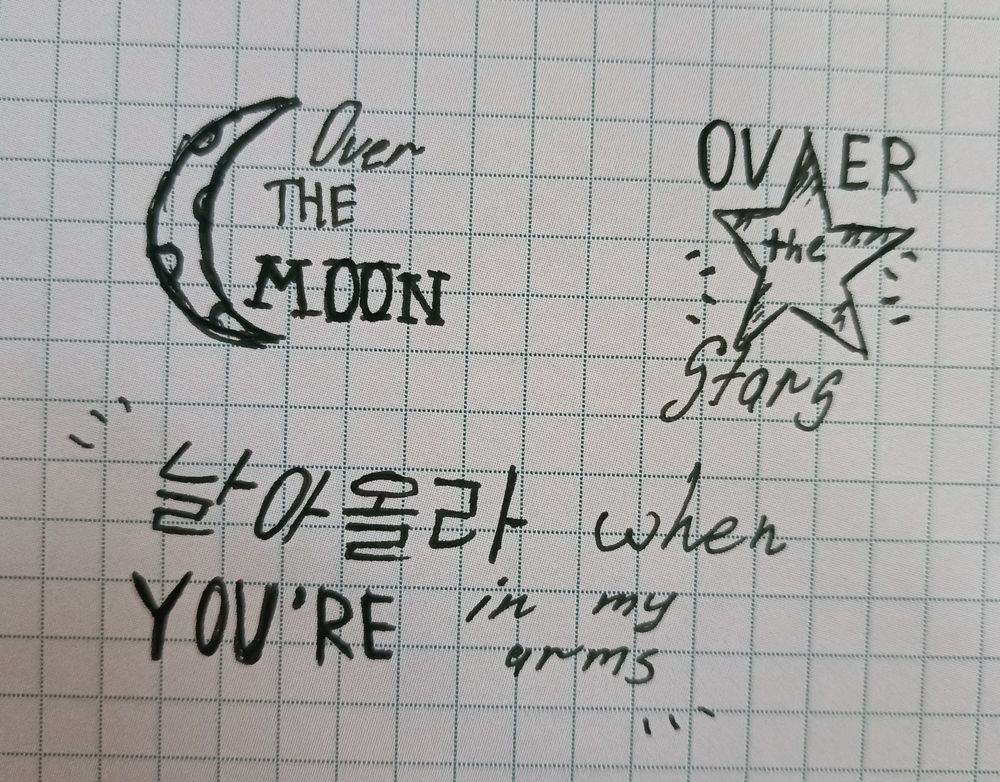 Over
THE
MOON
OVER
the
Stars
날아올라 when
YOU'RE in my
arms